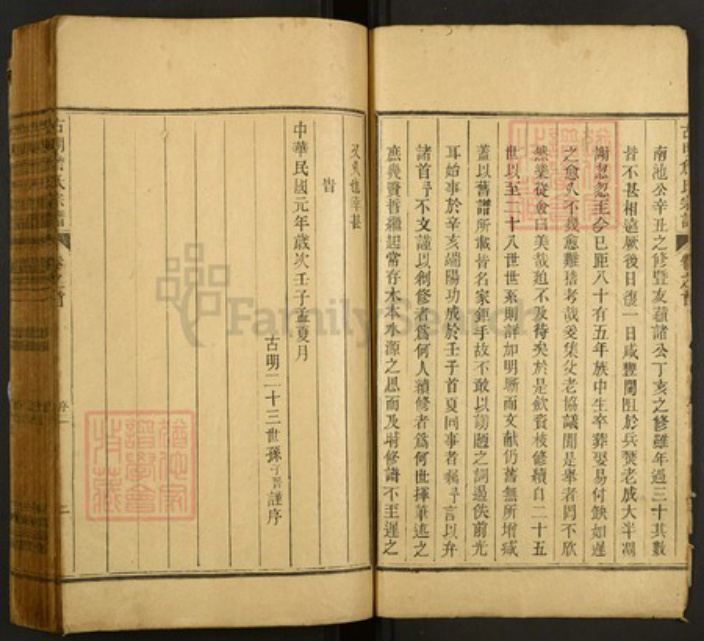 南池公辛丑之修暨友蘋諸公丁亥之修雖年過三十其數
皆不甚相遠厥後日復一日咸豐間阻於兵燹老成大半凋
謝忽忽至今已距八十有五年族中生卒葬娶易付缺如遲
之愈久不幾愈難稽考哉爰集父老協議聞是舉者罔不欣
然樂從僉曰美哉迨不及待矣於是歛資梭修續自二十五
世以至二十八世世系則詳加明晰而文献仍舊無所增減
蓋以舊譜所載皆名家鉅手故不敢以謭陋之詞遏佚前光
耳始事於辛亥端陽功成於壬子首夏同事者囑予言以弁
諸首予不文謹以剏修者為何人續修者為何世揮華述之
庶幾賢哲繼起常存木本水源之思而及時修譜不至遲之
又久也幸甚
旹
中華民國元年歲次壬子孟夏月
古明二十三世孫子晋謹序
古明詹氏宗譜
卷之首
序
二
FamilySearch